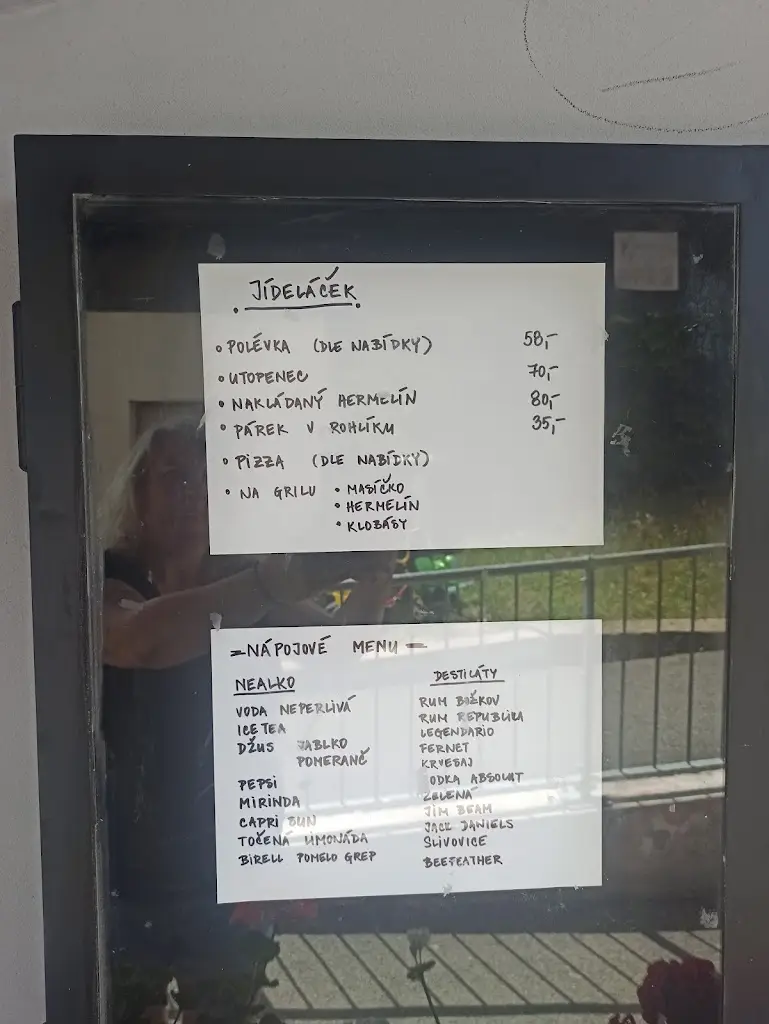 JÍDELÁČEK
• POLÉVKA (DLE NABÍDKY) 58,-
• UTOPENEC 70,-
• NAKLÁDANÝ HERMELÍN 80,-
• PÁREK V ROHLÍKU 35,-
• PIZZA (DLE NABÍDKY)
• NA GRILU • MASÍČKO
• HERMELÍN
• KLOBÁSY
=NÁPOJOVÉ MENU=
NEALKO
VODA NEPERLIVÁ
ICE TEA
DŽUS JABLKO
POMERANČ
PEPSI
MIRINDA
CAPRI SUN
TOČENÁ LIMONÁDA
BIRELL POMELO GREP
DESTILÁTY
RUM BOŽKOV
RUM REPUBLIKA
LEGENDARIO
FERNET
VODKA ABSOLUT
ZELENÁ
JIM BEAM
JACK DANIELS
SLIVOVICE
BEEFEATHER